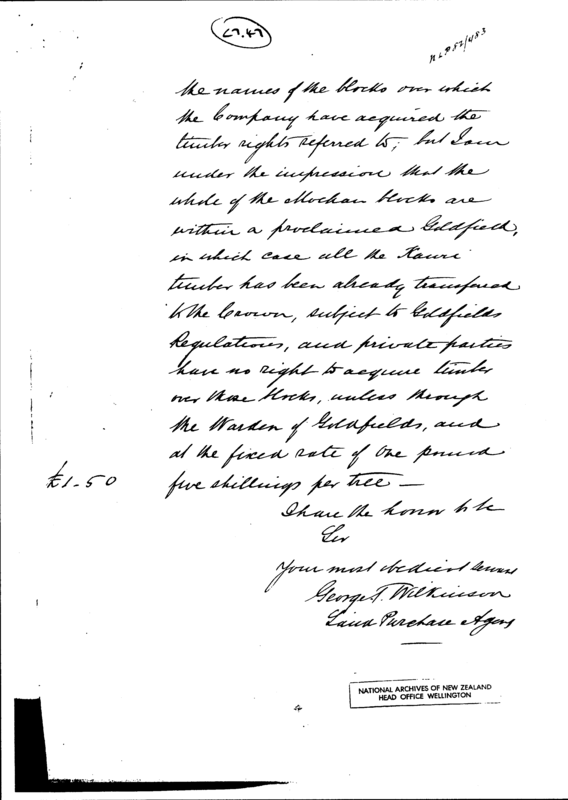 L7.47
NLP 82/483
the names of the blocks over which
the Company have acquired the
timber rights referred to; but I am
under the impression that the
whole of the Moehau blocks are
within a proclaimed Goldfield,
in which case all the Kauri
timber has been already transferred
to the Crown, subject to Goldfields
Regulations, and private parties
have no right to acquire timber
over those blocks, unless through
the Warden of Goldfields, and
at the fixed rate of one pound
£1-5 0
five shillings per tree —
I have the honor to be
Sir
Your most obedient servant
George T. Wilkinson
Land Purchase Agent
NATIONAL ARCHIVES OF NEW ZEALAND
HEAD OFFICE WELLINGTON